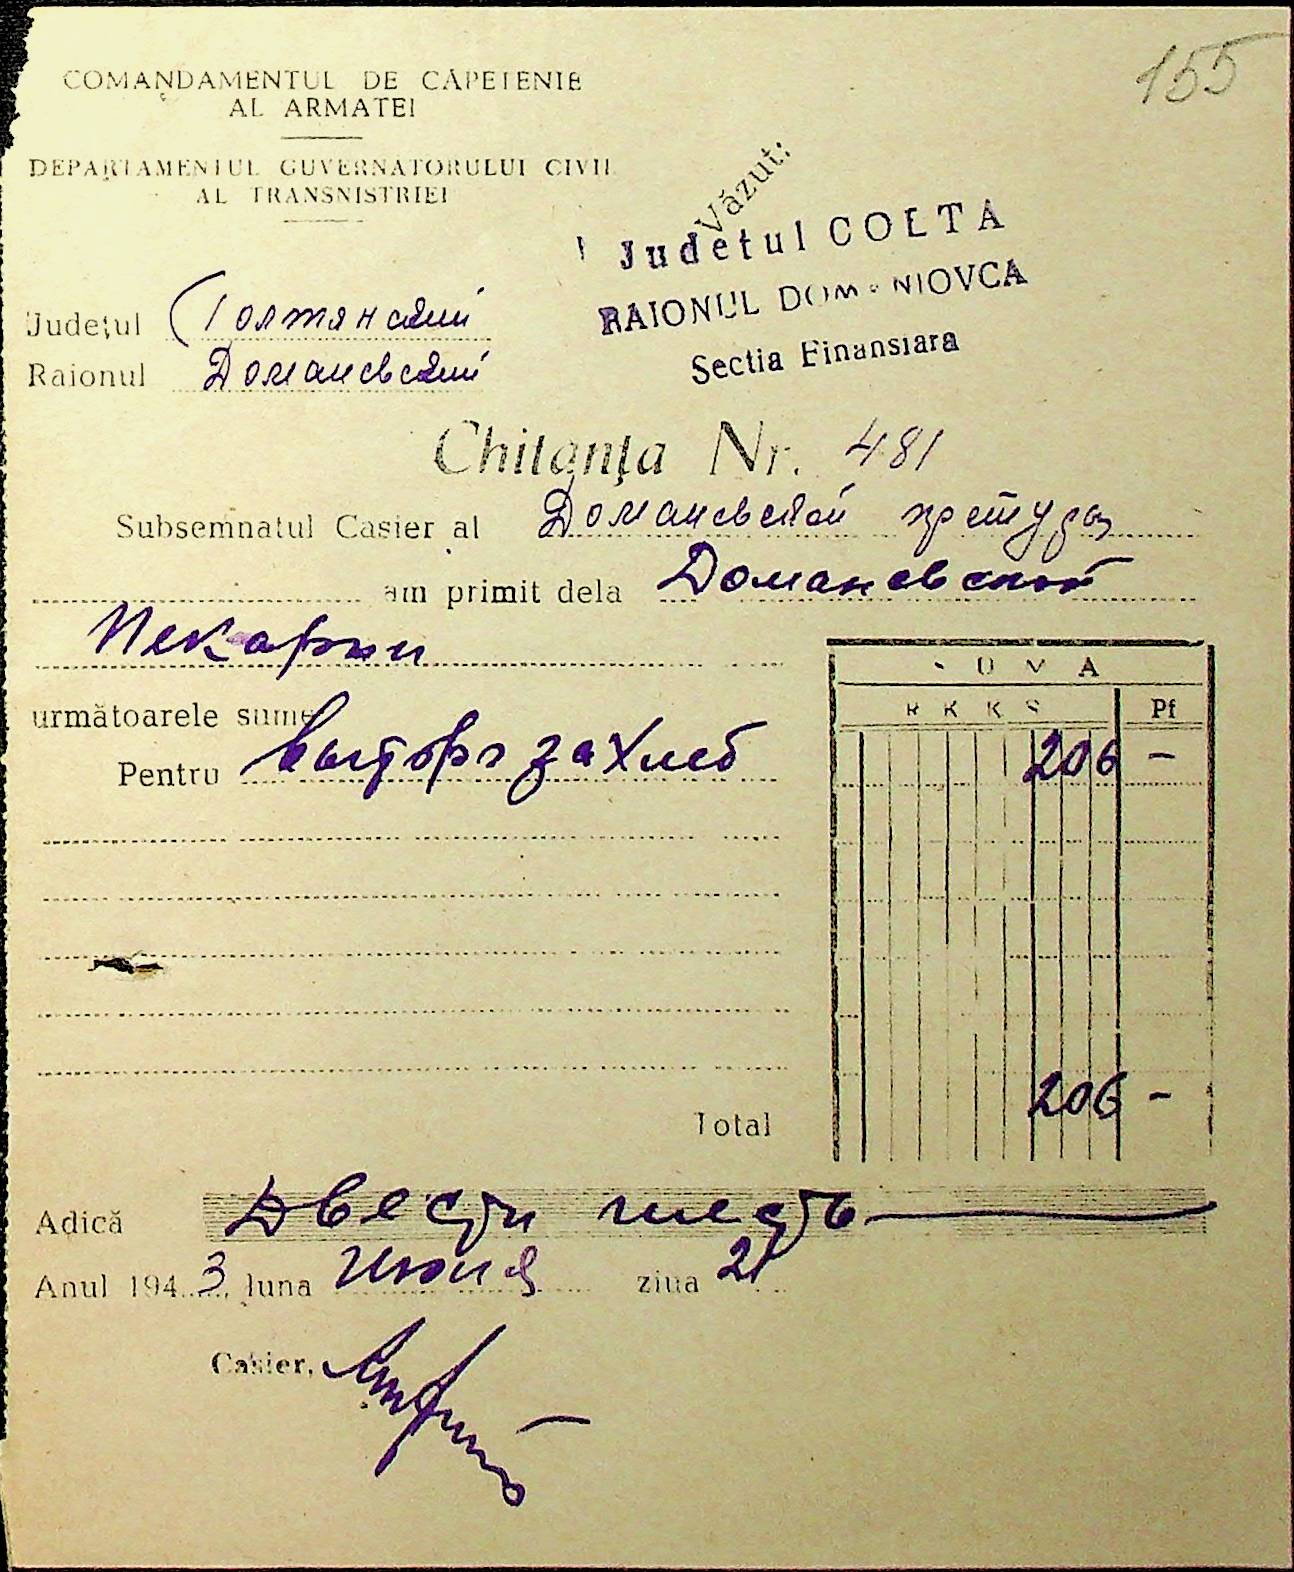 155
COMANDAMENTUL DE CĂPETENIE
AL ARMATEI
DEPARTAMENTUL GUVERNATORULUI CIVIL
AL TRANSNISTRIEI
Văzut:
Judetul GOLTA
RAIONUL DOMANIOVCA
Sectia Finansiara
Județul Голтянский
Raionul Домановский
Chitanța Nr. 481
Subsemnatul Casier al Домановской претуры
am primit dela Домановской
Пекарни
următoarele sume
Pentru выторг за хлеб
SUMA
RKKS Pf
206 -
Total 206 -
Adică Двести шесть
Anul 1943, luna Июня ziua 21
Casier,